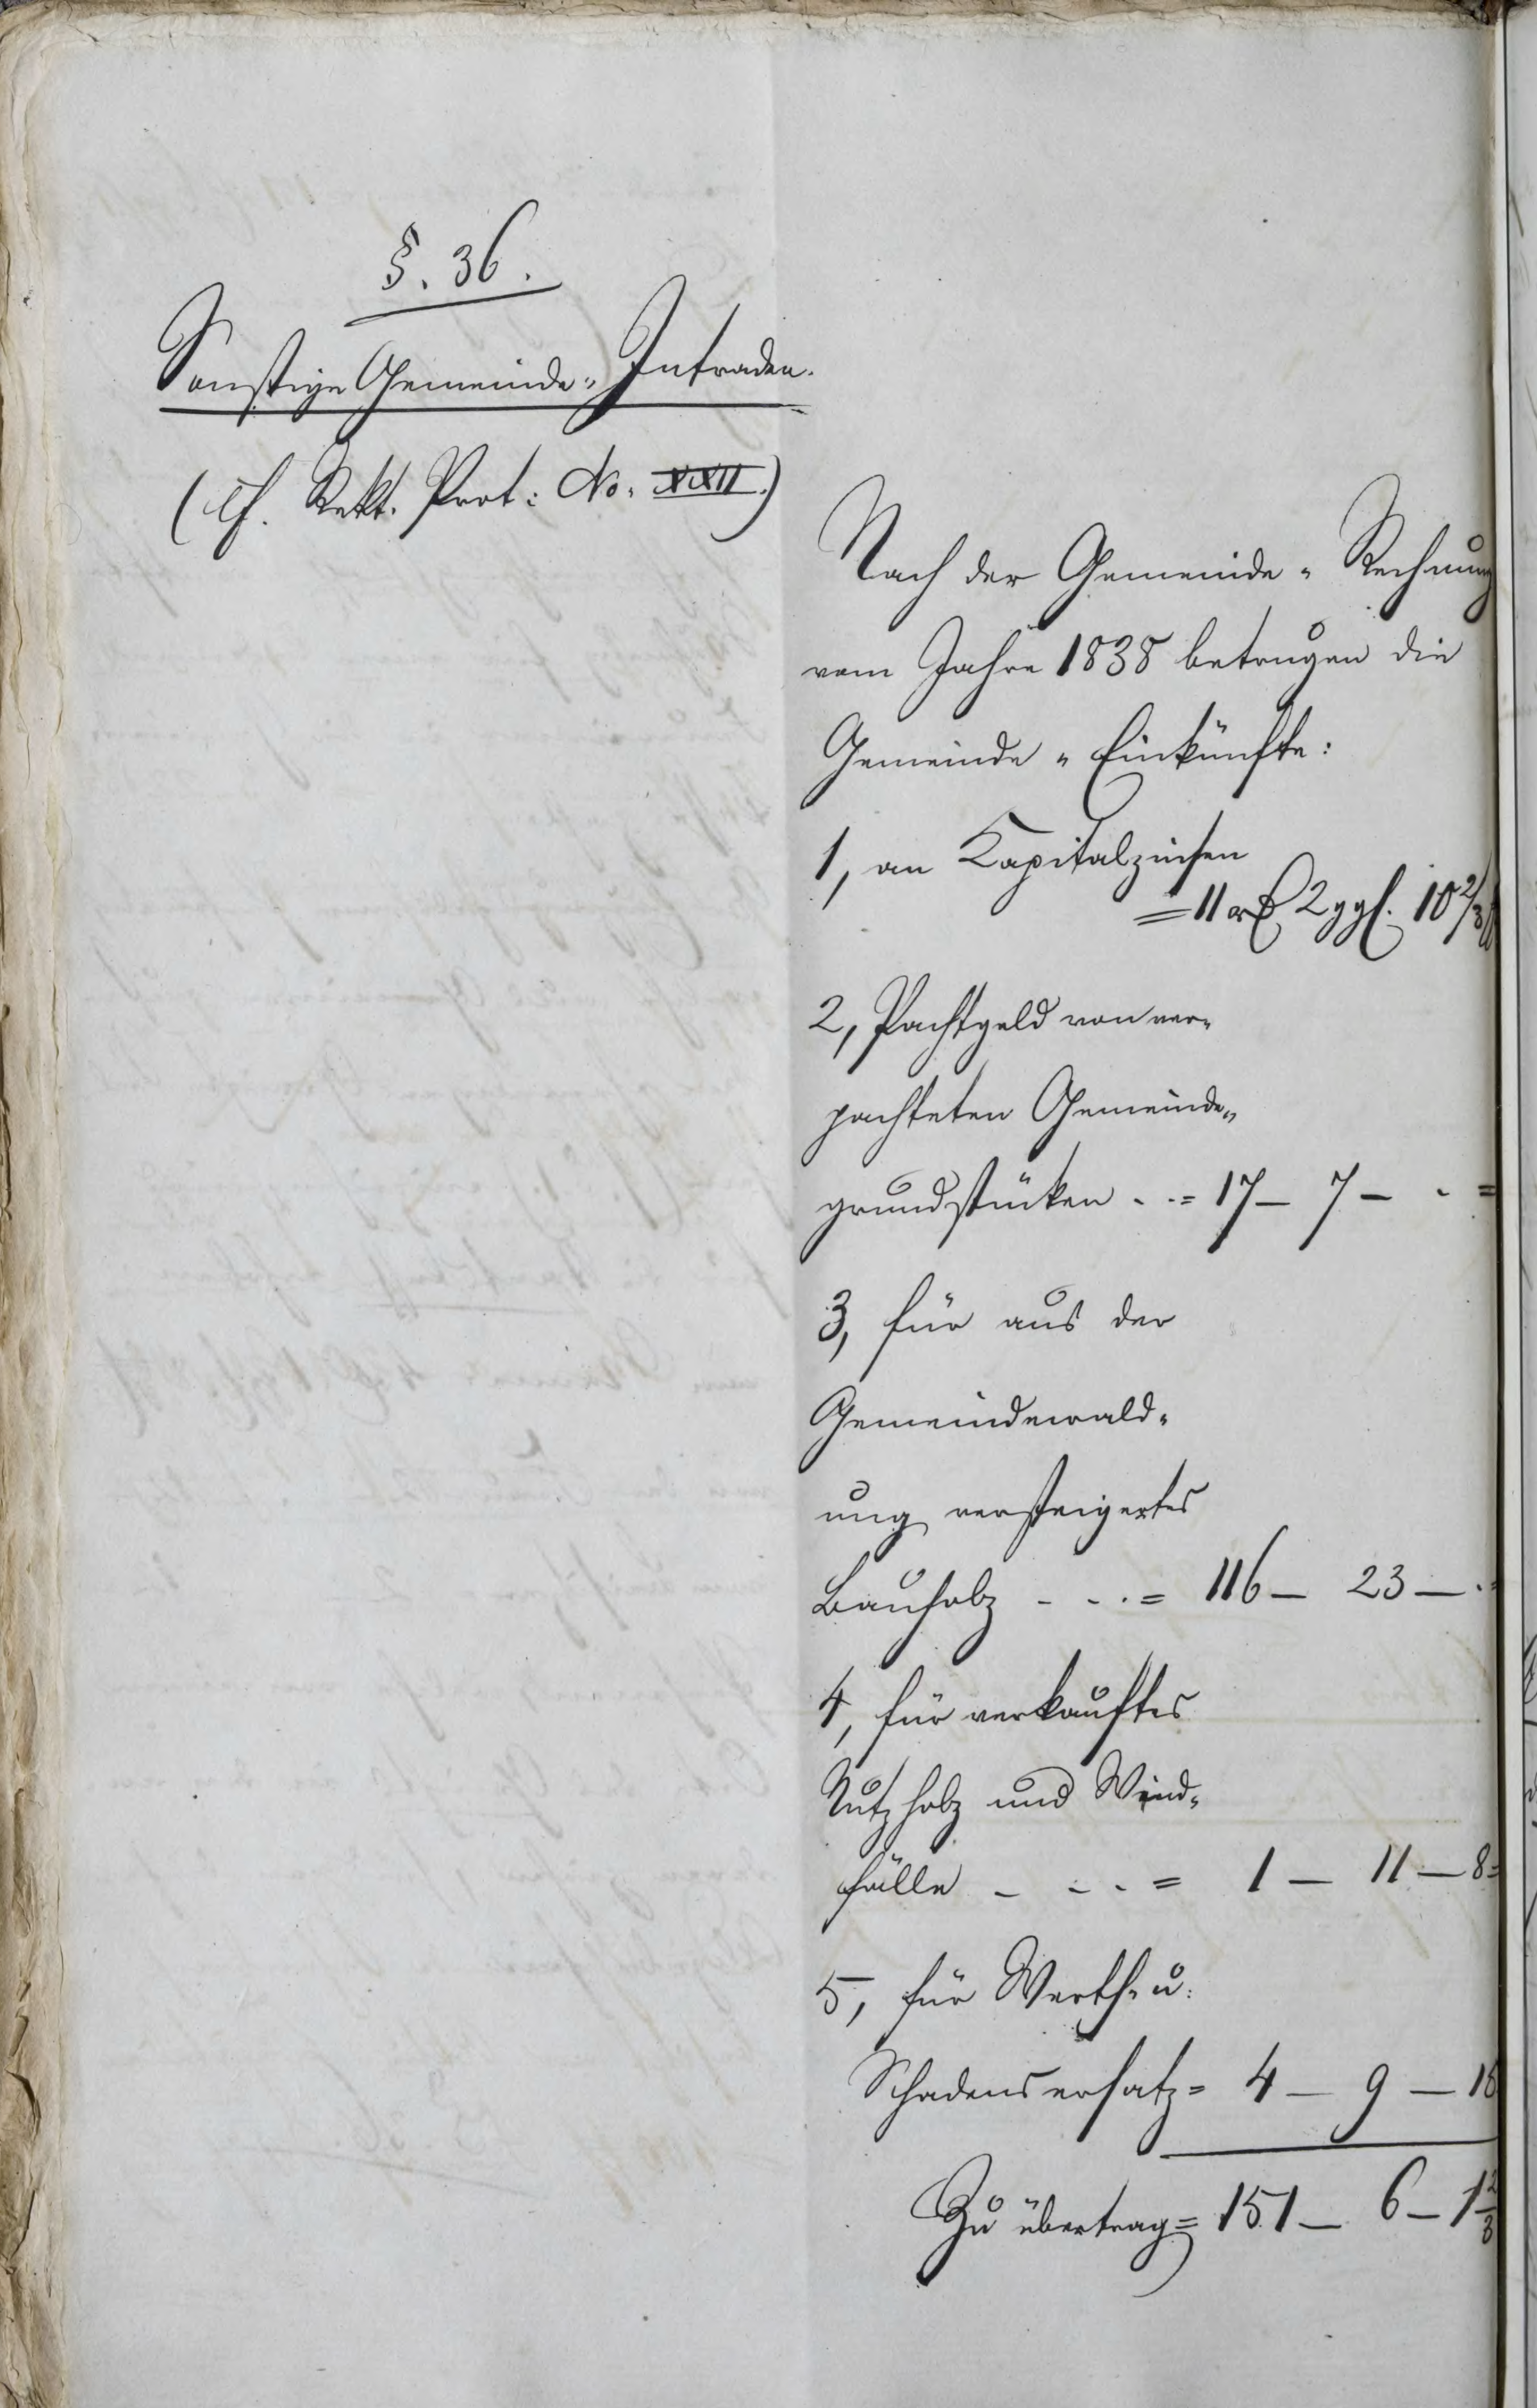 §. 36.
Sonstige Gemeinde-Intraden.
(cf. Rekt. Prot: No. XXII.)
Nach der Gemeinde-Rechnung
vom Jahre 1838 betrugen die
Gemeinde-Einkünfte:
1, an Kapitalzinsen
= 11 rℓ 2 ggl. 10 2/3
2, Pachtgeld von ver-
pachteten Gemeinde-
grundstüken . . = 17 — 7 — . =
3, für aus der
Gemeindewald-
ung versteigertes
Bauholz - - . = 116 — 23 — . =
4, für verkauftes
Nutzholz und Wind-
fälle - - . = 1 — 11 — 8 =
5, für Werth- u:
Schadensersatz = 4 — 9 —
Zu übertrag = 151 — 6 — 1 2/3